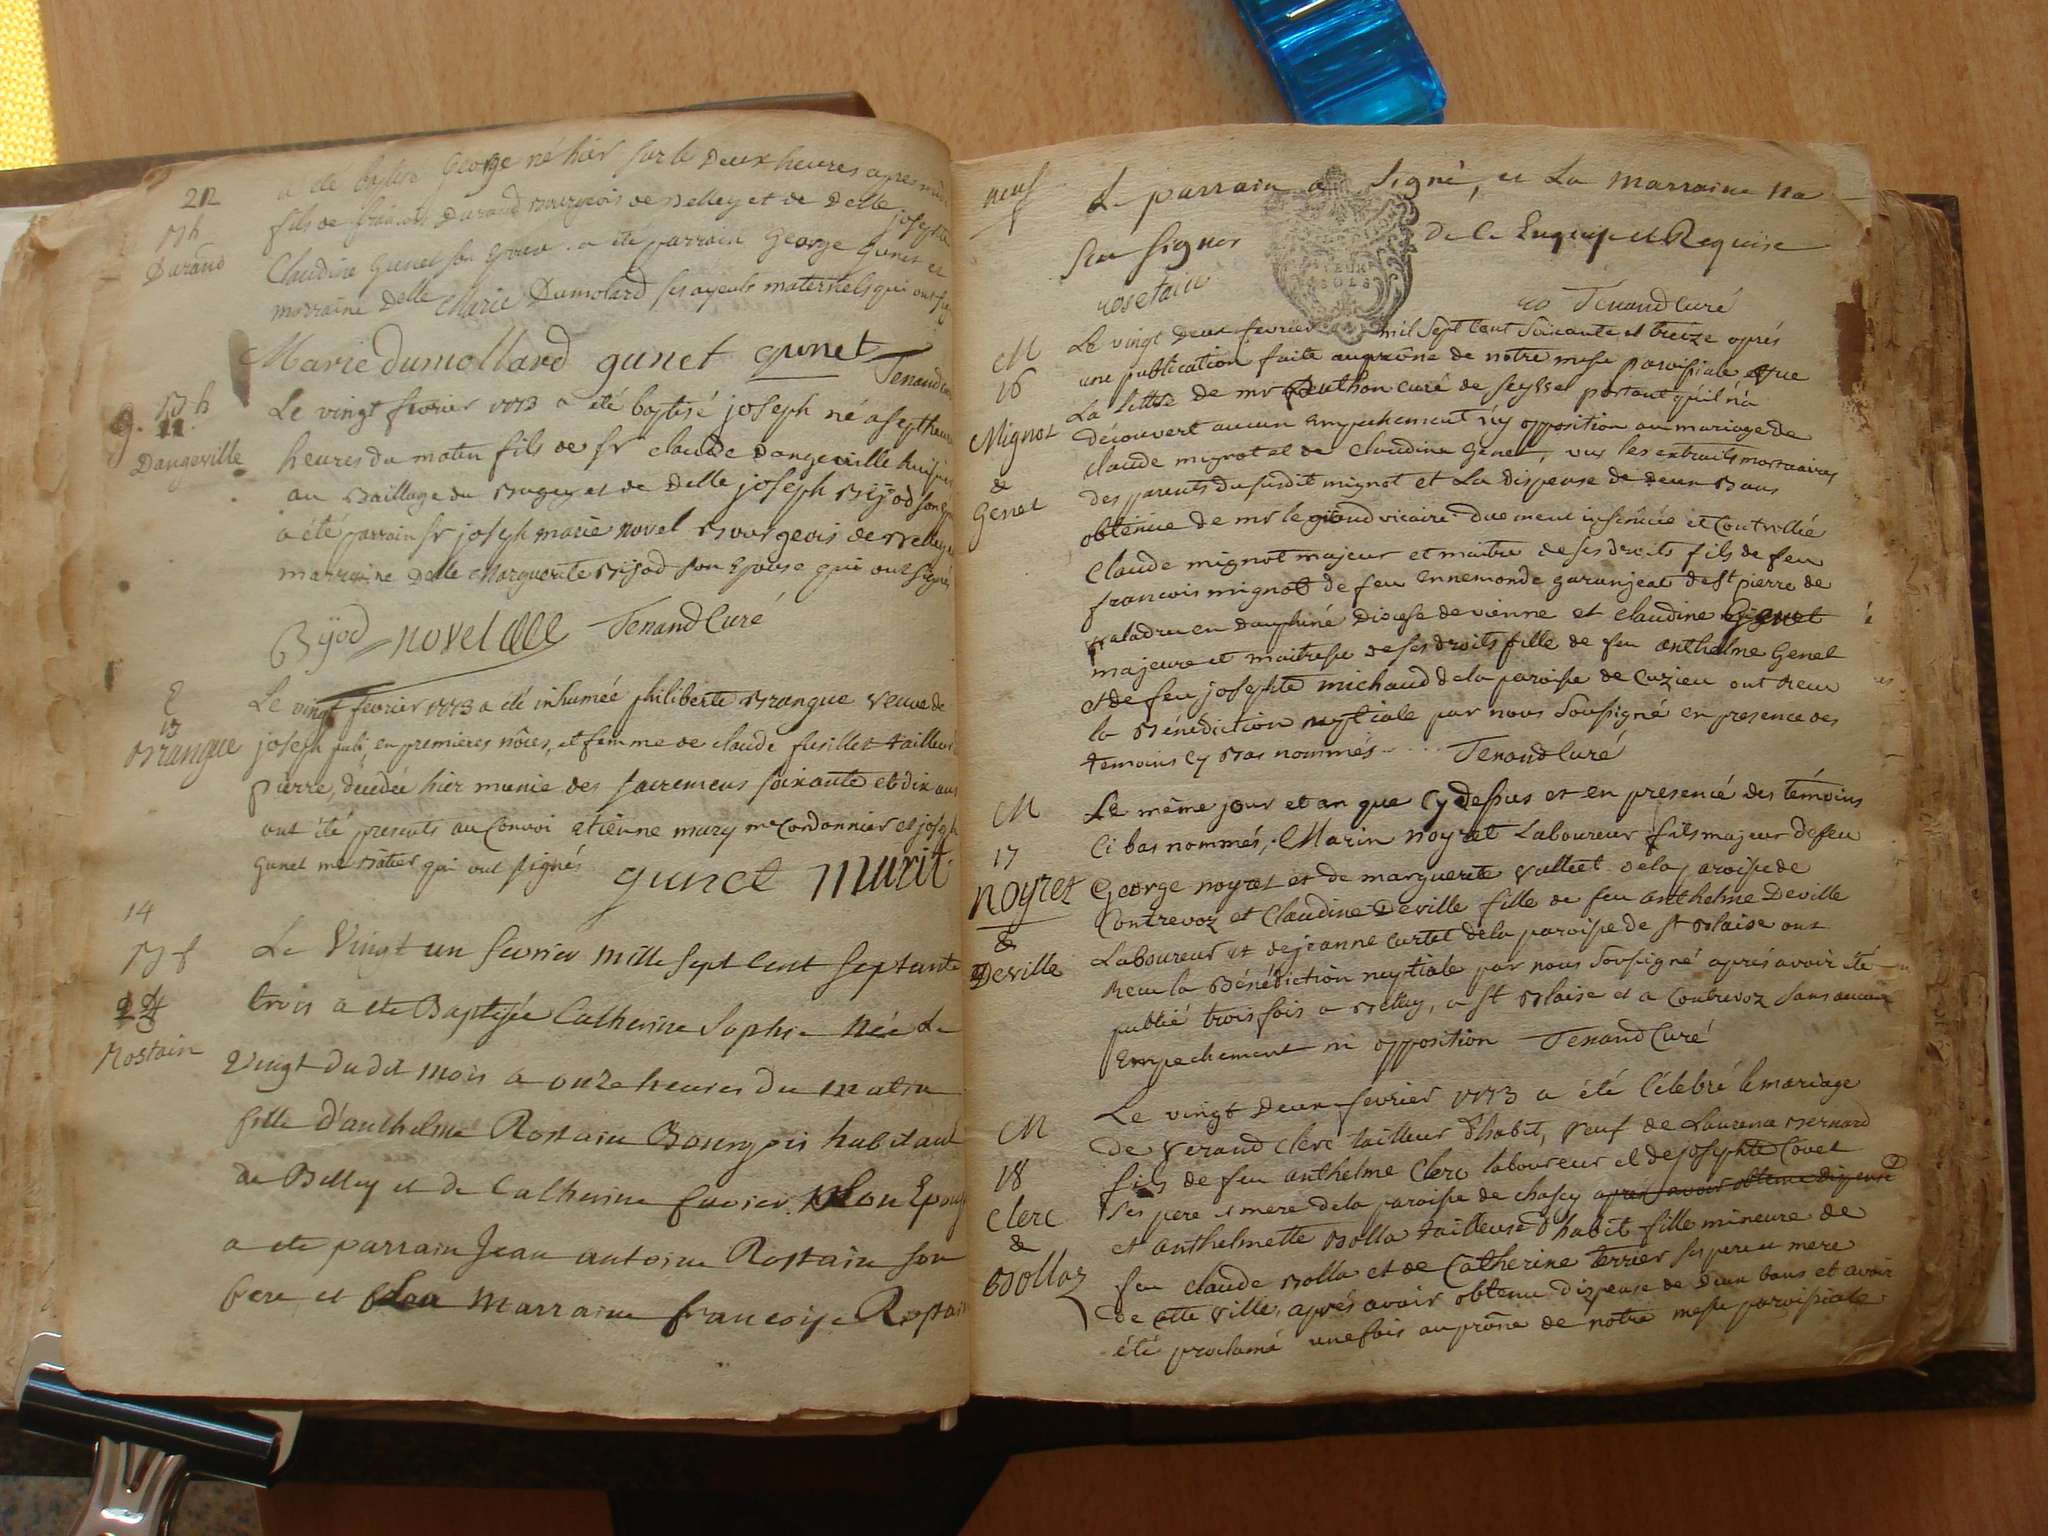 a été baptisé George né hier sur le deux heures apres midi
22
fils de francois Durand Bourgeois de Belley et de Delle josephte
Durand
Claudine Gunet son Epouse. a été parrain George Gunet et
marraine Delle Marie Dumolard ses ayeuls maternels qui ont signé
Marie dumollard gunet gunet Tenand curé
Le vingt fevrier 1773 a été baptisé joseph né a sept heures
heures du matin fils de sr claude Dangeville huissier
Dangeville
au Baillage du Bugey et de Delle joseph Bijod son Epouse
a été parrain sr joseph marie novel Bourgeois de Belley et
marraine Delle Marguerite Bijod son Epouse qui ont signés
Byod novel Tenand Curé
Le vingt fevrier 1773 a été inhumée philiberte Brangue veuve de
13
Brangue
joseph jubi, en premieres nôces, et femme de claude fusillet tailleur
pierre, décédée hier munie des sacremens soixante et dix ans
ont été presents au Convoi etienne mary me Cordonnier et joseph
Gunet me Bâtier qui ont signés gunet murit
14
Le Vingt un fevrier mille sept Cent septante
trois a ete Baptisée Catherine Sophie née Le
24
Rostain
Vingt du dit mois a onze heures du matin
fille d'anthelme Rostain Bourgois habitant
de Belley et de Catherine favier son Epouse
a ete parrain Jean antoine Rostain son
frere et marraine francoise Rostain
neuf
Le parrain a signé, et La marraine na
sceu signer de Ce Enquise et Requise
rosetain Tenand Curé
M
Le vingt deux fevrier mil sept Cent soixante et treize aprés
16
une publication faite au prône de notre messe paroissiale vue
La lettre de mr Buthon curé de seyssel portant qu'il n'a
Mignot
découvert aucun empechement n'y opposition au mariage de
&
claude mignot et de Claudine Genet, vus les extraits mortuaires
Genet
des parents du susdit mignot et La dispense de deux Bans
obtenue de mr le grand vicaire duement insinuée et Controllée
Claude mignot majeur et maitre de ses droits fils de feu
francois mignot de feu Ennemonde garanjeat de St pierre de
paladru en Dauphiné Diocese de vienne et claudine Genet
majeure et maitresse de ses droits fille de feu anthelme Genet
et de feu josephte michaud de la paroisse de Cuzieu ont Receu
la Bénédiction nuptiale par nous soussigné en presence des
temoins Cy Bas nommés Tenand Curé
M
Le même jour et an que Cy dessus et en presence des témoins
17
Ci bas nommés, Marin noyret Laboureur fils majeur de feu
Noyret
George noyret et de marguerite vallet de la paroisse de
&
Contrevoz et Claudine Deville fille de feu anthelme Deville
Deville
Laboureur et de jeanne curtet de la paroisse de st Blaise ont
Receu la Bénédiction nuptiale par nous soussigné aprés avoir été
publié trois fois a Belley, a st Blaise et a Contrevoz sans aucun
Empechement ni opposition Tenand Curé
M
Le vingt deux fevrier 1773 a été Célébré le mariage
18
de verand Clerc tailleur d'habit, veuf de Laurence Bernard
Clerc
fils de feu anthelme Clerc laboureur et de josephte Covet
&
ses pere et mere de la paroisse de chasey aprés avoir obtenu dispense
Bollaz
et anthelmette Bolla tailleuse d'habit fille mineure de
feu claude Bolla et de Catherine Terrier ses pere et mere
de Cette ville, aprés avoir obtenu dispense de deux bans et avoir
été proclamé une fois au prône de notre messe paroissiale